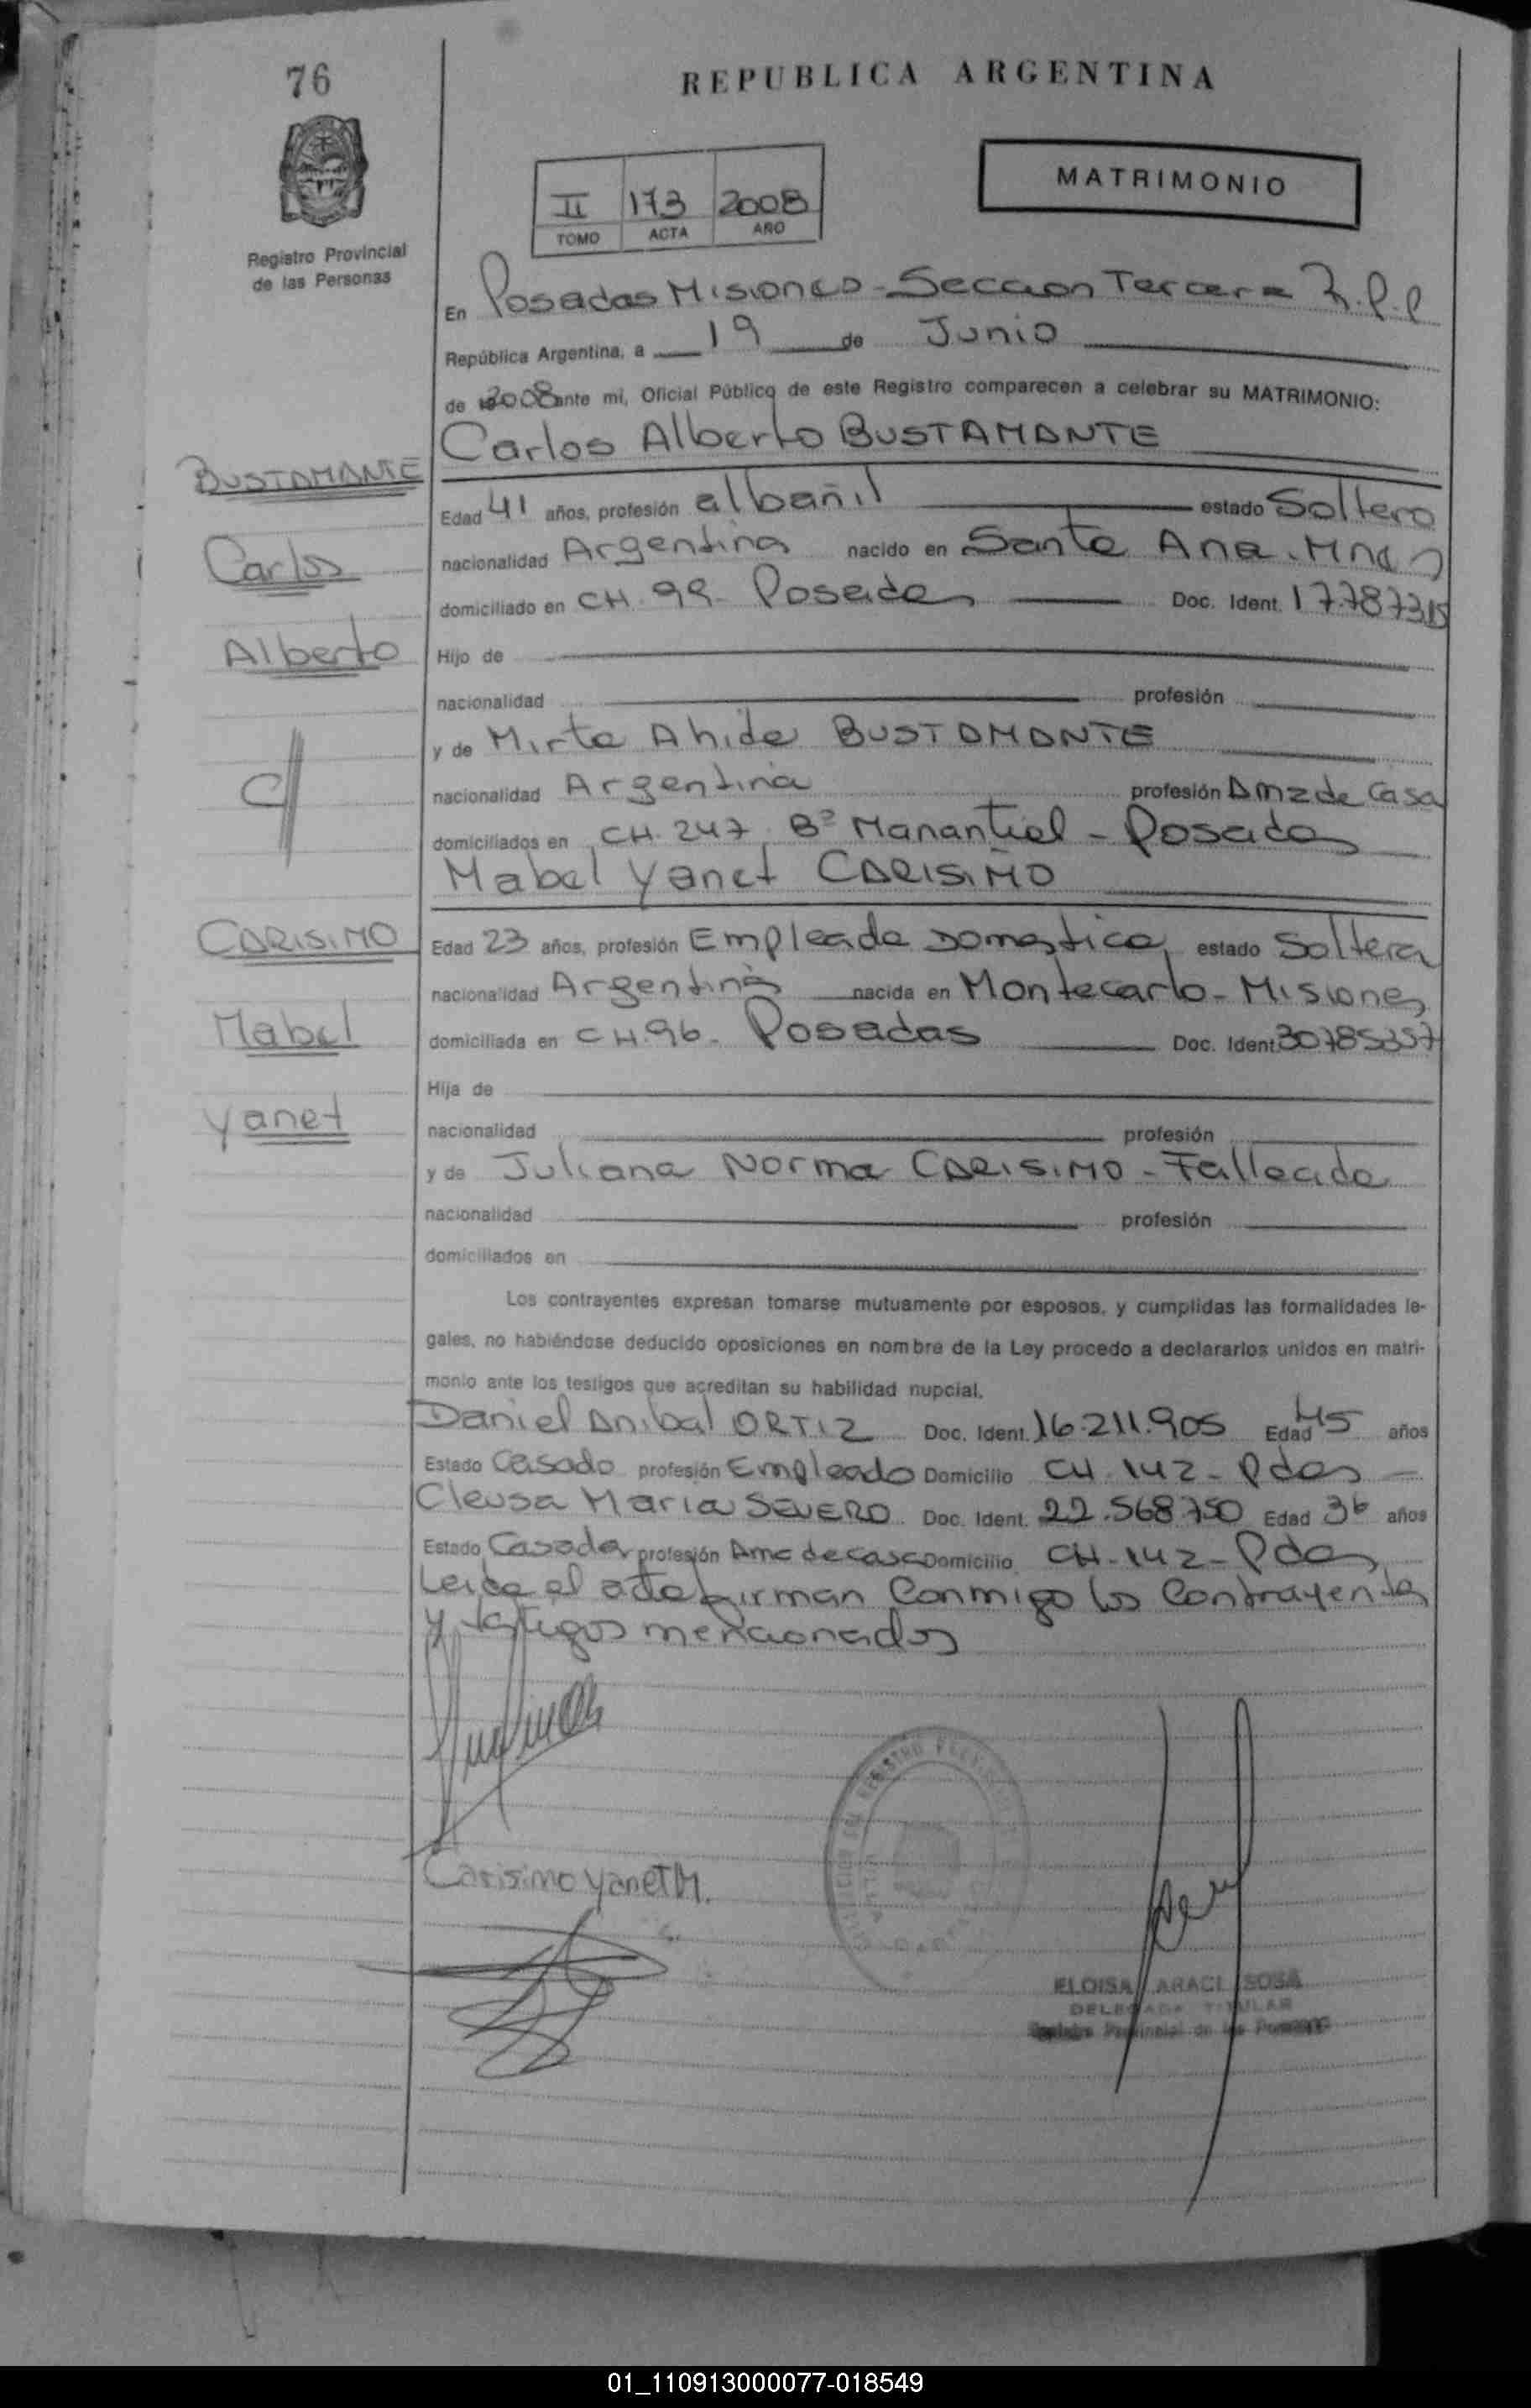 76
REPUBLICA ARGENTINA
Registro Provincial
de las Personas
II 173 2008
TOMO ACTA AÑO
MATRIMONIO
En Posadas Misiones - Seccion Tercera R.P.P
República Argentina, a 19 de Junio
de 2008 ante mí, Oficial Público de este Registro comparecen a celebrar su MATRIMONIO:
Carlos Alberto BUSTAMANTE
BUSTAMANTE
Edad 41 años, profesión albañil estado Soltero
Carlos
nacionalidad Argentina nacido en Santa Ana. Mnes
domiciliado en CH. 99- Posadas Doc. Ident. 17.787315
Alberto
Hijo de
nacionalidad profesión
y de Mirta Ahide BUSTAMANTE
C//
nacionalidad Argentina profesión Ama de Casa
domiciliados en CH. 247. Bº Manantiel - Posadas
Mabel Yanet CARISIMO
CARISIMO
Edad 23 años, profesión Empleada Domestica estado Soltera
nacionalidad Argentina nacida en Montecarlo - Misiones
Mabel
domiciliada en CH.96. Posadas Doc. Ident. 30785357
Hija de
Yanet
nacionalidad profesión
y de Juliana Norma CARISIMO - Fallecida
nacionalidad profesión
domiciliados en
Los contrayentes expresan tomarse mutuamente por esposos, y cumplidas las formalidades le-
gales, no habiéndose deducido oposiciones en nombre de la Ley procedo a declararlos unidos en matri-
monio ante los testigos que acreditan su habilidad nupcial.
Daniel Anibal ORTIZ Doc. Ident. 16.211.905 Edad 45 años
Estado Casado profesión Empleado Domicilio CH. 142 - Pdas
Cleusa Maria SEVERO Doc. Ident. 22.568.750 Edad 36 años
Estado Casada profesión Ama de casa Domicilio CH-142 - Pdas
Leida el acta firman Conmigo los Contrayentes
y testigos mencionados
Carisimo Yanet M.
ELOISA ARACI SOSA
DELEGADA TITULAR
Registro Provincial de las Personas
01_110913000077-018549